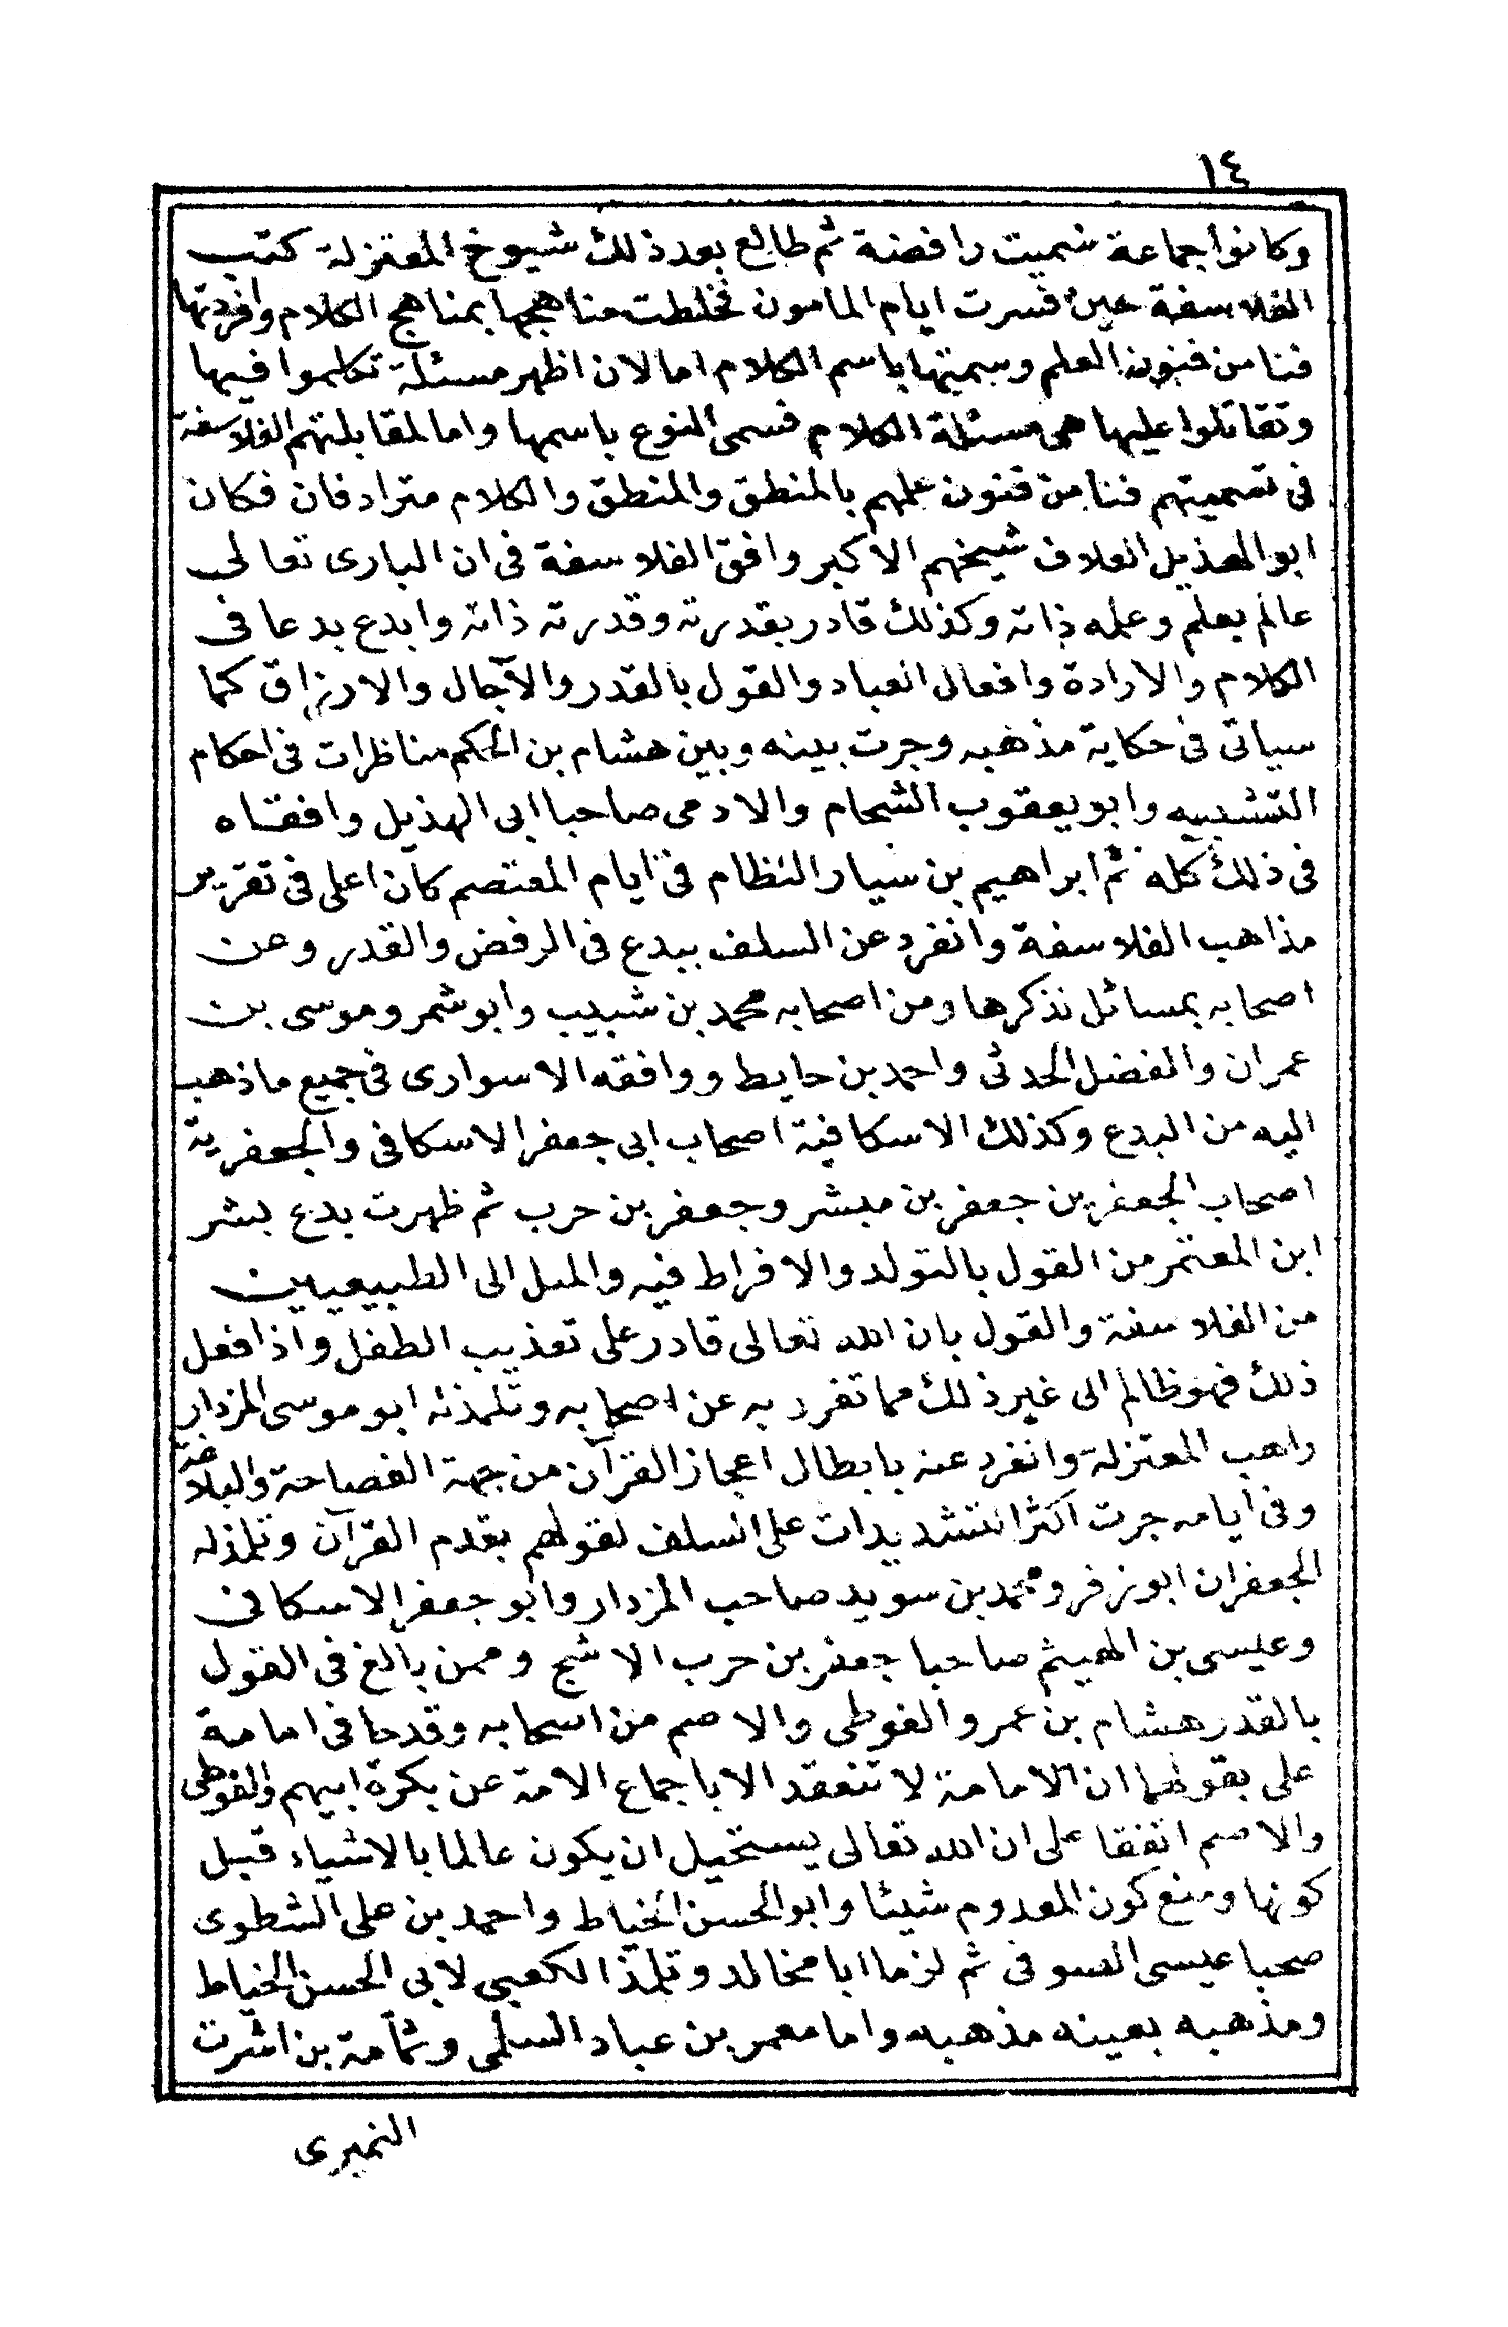 ١٤
وكانوا جماعة سميت رافضة ثم طالع بعد ذلك شيوخ المعتزلة كتب
الفلاسفة حين فسرت ايام المامون فخلطت مناهجها بمناهج الكلام وافردتها
فنا من فنون العلم وسميتها باسم الكلام اما لان اظهر مسئلة تكلموا فيها
وتقاتلوا عليها هى مسئلة الكلام فسمى النوع باسمها واما لمقابلتهم الفلاسفة
فى تسميتهم فنا من فنون علمهم بالمنطق والمنطق والكلام مترادفان فكان
ابو الهذيل العلاف شيخهم الاكبر وافق الفلاسفة فى ان البارى تعالى
عالم بعلم وعلمه ذاته وكذلك قادر بقدرته وقدرته ذاته وابدع بدعا فى
الكلام والارادة وافعال العباد والقول بالقدر والآجال والارزاق كما
سياتى فى حكاية مذهبه وجرت بينه وبين هشام بن الحكم مناظرات فى احكام
التشبيه وابو يعقوب الشحام والادمى صاحبا ابى الهذيل وافقاه
فى ذلك كله ثم ابراهيم بن سيار النظام فى ايام المعتصم كان اعلى فى تقرير
مذاهب الفلاسفة وانفرد عن السلف ببدع فى الرفض والقدر وعن
اصحابه بمسائل نذكرها ومن اصحابه محمد بن شبيب وابو شمر وموسى بن
عمران والفضل الحدثى واحمد بن حايط ووافقه الاسوارى فى جميع ما ذهب
اليه من البدع وكذلك الاسكافية اصحاب ابى جعفر الاسكافى والجعفرية
اصحاب الجعفرين جعفر بن مبشر وجعفر بن حرب ثم ظهرت بدع بشر
ابن المعتمر من القول بالتولد والافراط فيه والميل الى الطبيعيين
من الفلاسفة والقول بان الله تعالى قادر على تعذيب الطفل واذا فعل
ذلك فهو ظالم الى غير ذلك مما تفرد به عن اصحابه وتلمذ له ابو موسى المزدار
راهب المعتزلة وانفرد عنه بابطال اعجاز القرآن من جهة الفصاحة والبلاغة
وفى ايامه جرت اكثر التشديدات على السلف لقولهم بقدم القرآن وتلمذ له
الجعفران ابو زفر ومحمد بن سويد صاحب المزدار وابو جعفر الاسكافى
وعيسى بن الهيثم صاحبا جعفر بن حرب الاشج وممن بالغ فى القول
بالقدر هشام بن عمرو الفوطى والاصم من اصحابه وقدحا فى امامة
على بقولهما ان الامامة لا تنعقد الا باجماع الامة عن بكرة ابيهم والفوطى
والاصم اتفقا على ان الله تعالى يستحيل ان يكون عالما بالاشياء قبل
كونها ومنع كون المعدوم شيئا وابو الحسن الخياط واحمد بن على الشطوى
صحبا عيسى الصوفى ثم لزما ابا مخالد وتلمذ الكعبى لابى الحسن الخياط
ومذهبه بعينه مذهبه واما معمر بن عباد السلمى وثمامة بن اشرت
النميرى